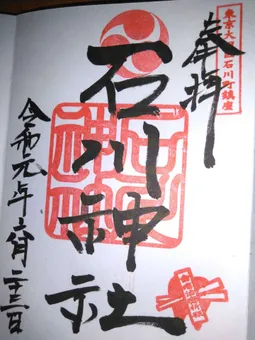 奉拝
東京大田石川町鎮座
石川神社
令和元年六月二十三日